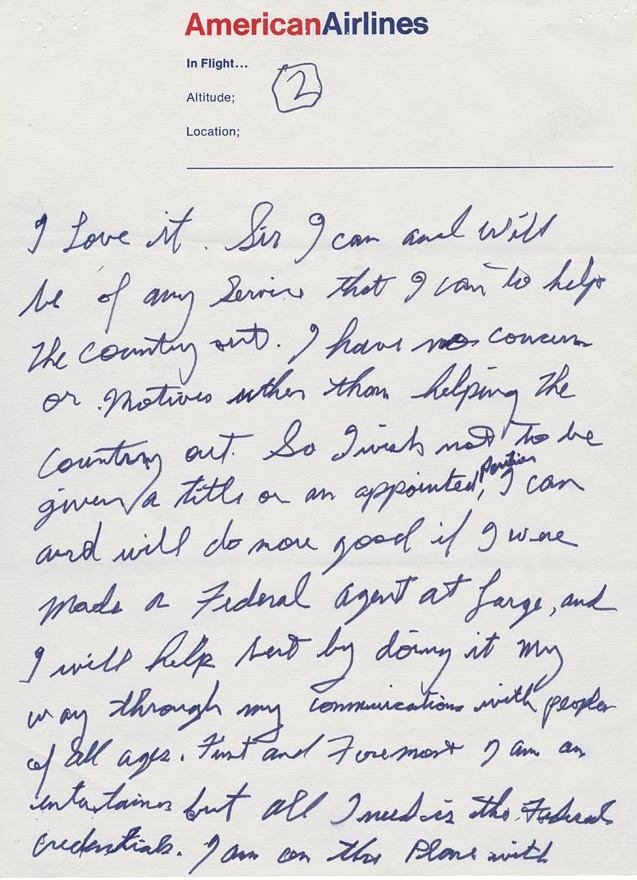 AmericanAirlines
In Flight...
Altitude;
2
Location;
I Love it. Sir I can and will
be of any Service that I can to help
the country out. I have no concern
or Motives other than helping the
country out. So I wish not to be
given a title or an appointed, Position I can
and will do more good if I were
made a Federal Agent at Large, and
I will help best by doing it my
way through my communications with people
of all ages. First and Foremost I am an
entertainer but all I need is the Federal
credentials. I am on the Plane with